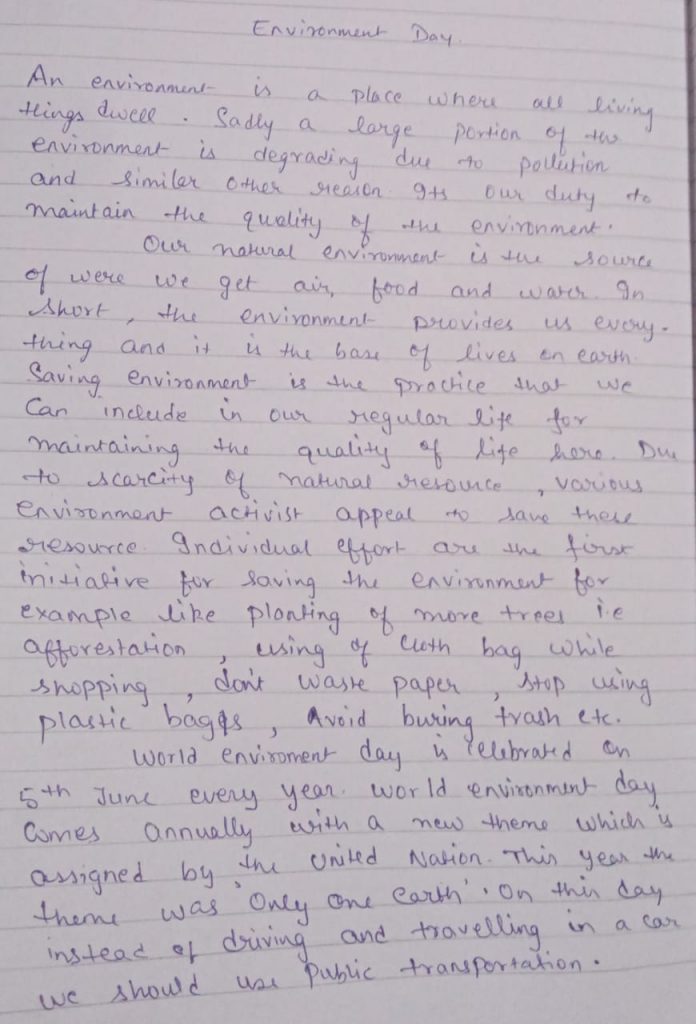 Environment Day.
An environment is a place where all living
things dwell. Sadly a large portion of the
environment is degrading due to pollution
and similar other reason. Its our duty to
maintain the quality of the environment.
Our natural environment is the source
of were we get air, food and water. In
short, the environment provides us every-
thing and it is the base of lives on earth.
Saving environment is the practice that we
Can include in our regular life for
maintaining the quality of life here. Due
to scarcity of natural resource, various
environment activist appeal to save these
resource. Individual effort are the first
initiative for saving the environment for
example like planting of more trees i.e
afforestation, using of cloth bag while
shopping, don't waste paper, stop using
plastic baggs, Avoid buring trash etc.
World enviroment day is celebrated on
5th June every year. World environment day
Comes annually with a new theme which is
assigned by the United Nation. This year the
theme was 'Only One Earth'. On this day
instead of driving and travelling in a car
we should use public transportation.